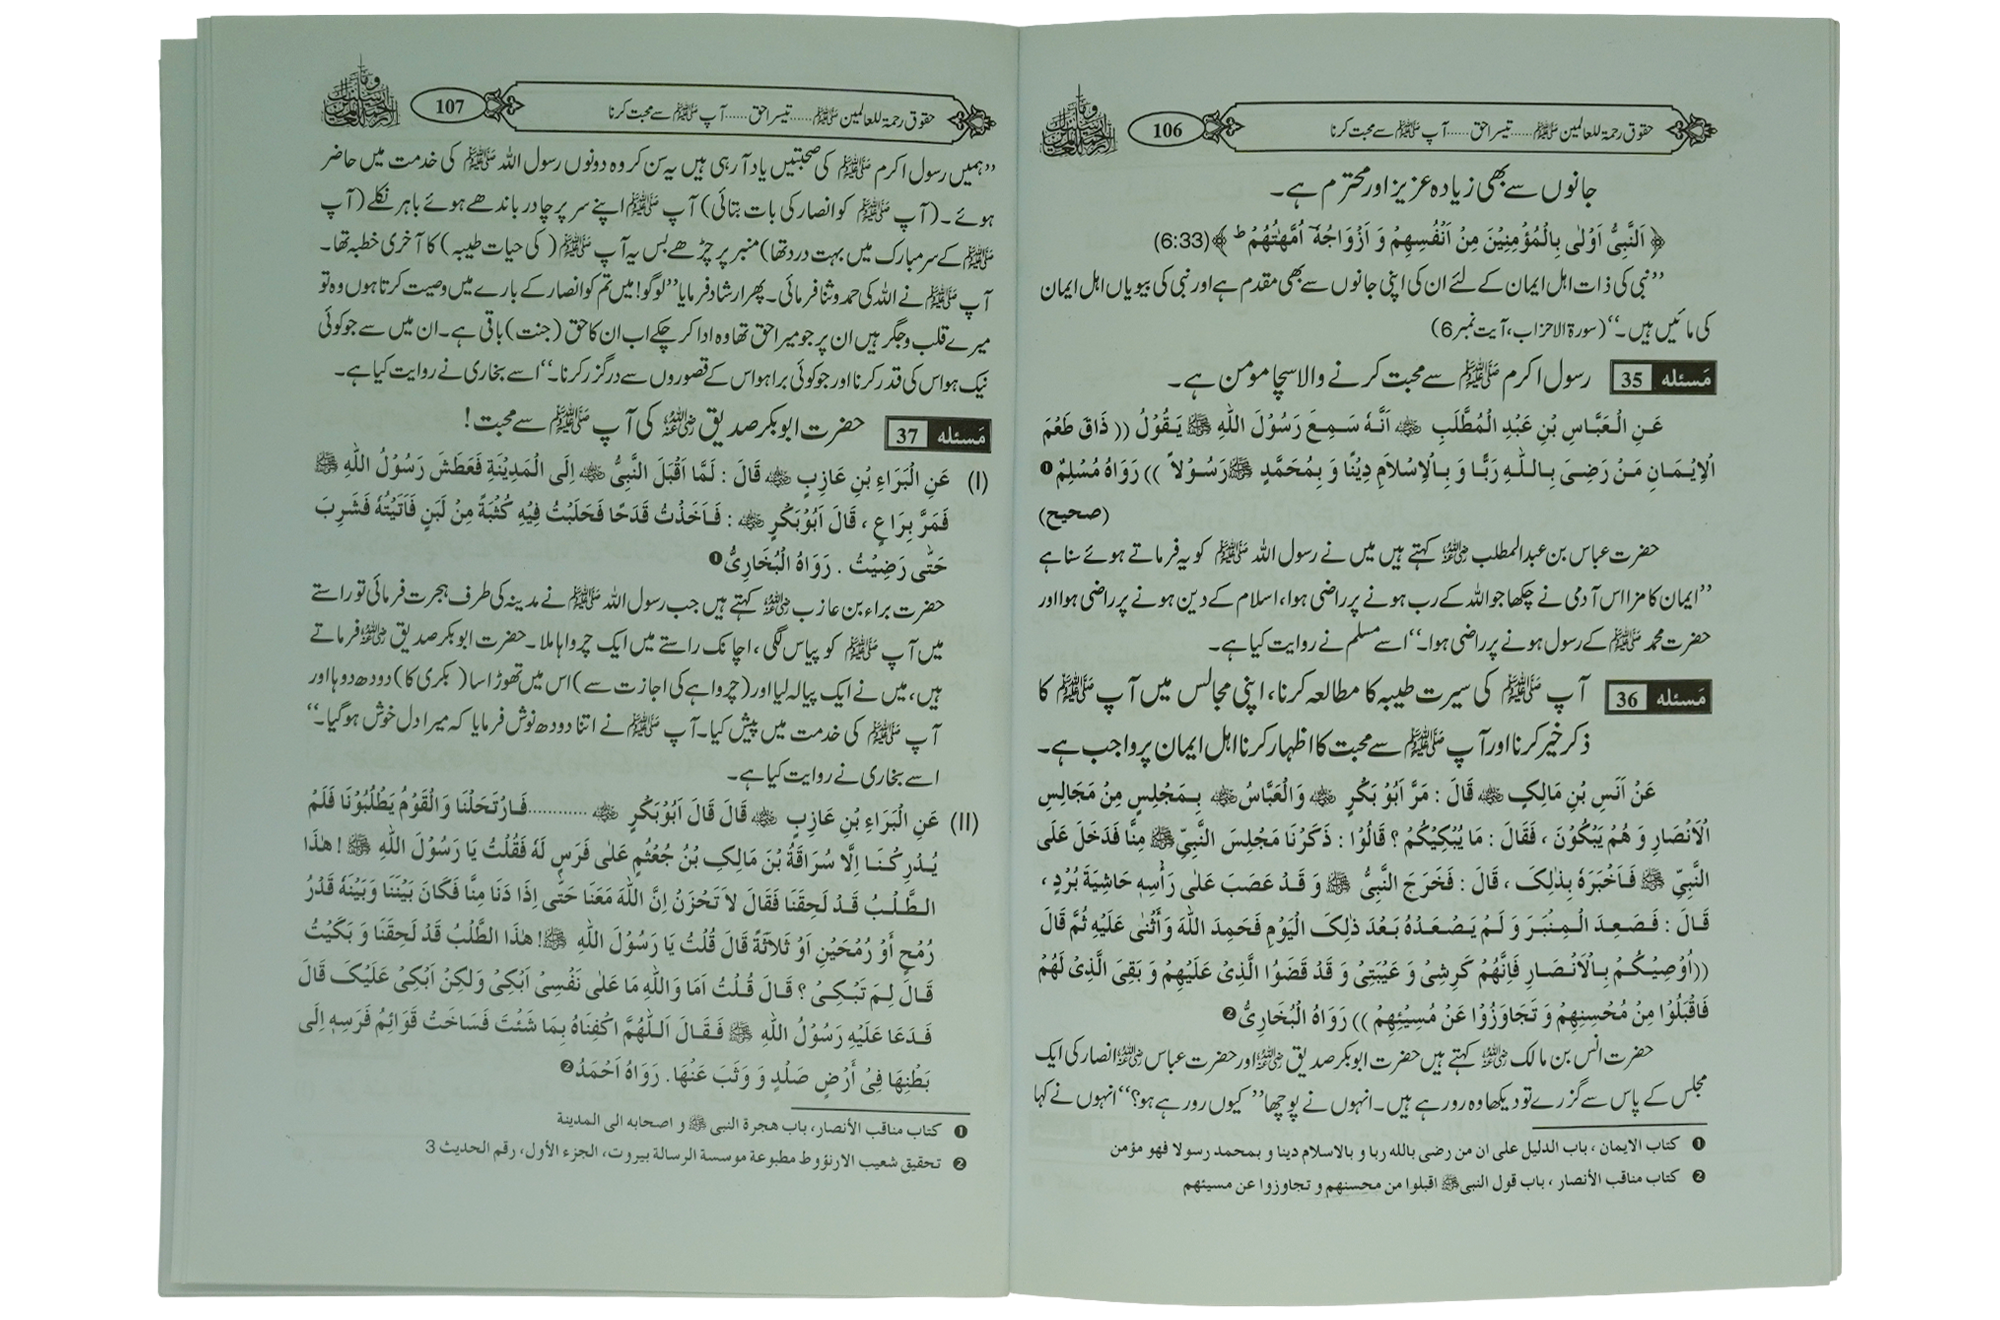 106
حقوق رحمۃ للعالمین ﷺ ...... تیسرا حق ...... آپ ﷺ سے محبت کرنا
جانوں سے بھی زیادہ عزیز اور محترم ہے۔
﴿ اَلنَّبِیُّ اَوْلٰی بِالْمُؤْمِنِیْنَ مِنْ اَنْفُسِهِمْ وَ اَزْوَاجُهٗٓ اُمَّهٰتُهُمْ ط ﴾(6:33)
’’نبی کی ذات اہل ایمان کے لئے ان کی اپنی جانوں سے بھی مقدم ہے اور نبی کی بیویاں اہل ایمان
کی مائیں ہیں۔‘‘ (سورۃ الاحزاب، آیت نمبر6)
مَسئلہ 35 رسول اکرم ﷺ سے محبت کرنے والا سچا مومن ہے۔
عَنِ الْعَبَّاسِ بْنِ عَبْدِ الْمُطَّلَبِ ؓ اَنَّهٗ سَمِعَ رَسُوْلَ اللّٰهِ ﷺ یَقُوْلُ (( ذَاقَ طَعْمَ
الْاِیْمَانِ مَنْ رَضِیَ بِاللّٰهِ رَبًّا وَ بِالْاِسْلاَمِ دِیْنًا وَ بِمُحَمَّدٍ ﷺ رَسُوْلاً )) رَوَاهُ مُسْلِمٌ ❶
(صحیح)
حضرت عباس بن عبدالمطلب ؓ کہتے ہیں میں نے رسول اللہ ﷺ کو یہ فرماتے ہوئے سنا ہے
’’ایمان کا مزا اس آدمی نے چکھا جو اللہ کے رب ہونے پر راضی ہوا، اسلام کے دین ہونے پر راضی ہوا اور
حضرت محمد ﷺ کے رسول ہونے پر راضی ہوا۔‘‘ اسے مسلم نے روایت کیا ہے۔
مَسئلہ 36 آپ ﷺ کی سیرت طیبہ کا مطالعہ کرنا، اپنی مجالس میں آپ ﷺ کا
ذکر خیر کرنا اور آپ ﷺ سے محبت کا اظہار کرنا اہل ایمان پر واجب ہے۔
عَنْ اَنَسِ بْنِ مَالِکٍ ؓ قَالَ : مَرَّ اَبُوْ بَکْرٍ ؓ وَالْعَبَّاسُ ؓ بِمَجْلِسٍ مِنْ مَجَالِسِ
الْاَنْصَارِ وَ هُمْ یَبْکُوْنَ ، فَقَالَ : مَا یُبْکِیْکُمْ ؟ قَالُوْا : ذَکَرْنَا مَجْلِسَ النَّبِیِّ ﷺ مِنَّا فَدَخَلَ عَلَی
النَّبِیِّ ﷺ فَاَخْبَرَهٗ بِذٰلِکَ ، قَالَ : فَخَرَجَ النَّبِیُّ ﷺ وَ قَدْ عَصَبَ عَلٰی رَأْسِهٖ حَاشِیَةَ بُرْدٍ ،
قَالَ : فَصَعِدَ الْمِنْبَرَ وَ لَمْ یَصْعَدْهُ بَعْدَ ذٰلِکَ الْیَوْمِ فَحَمِدَ اللّٰهَ وَاَثْنٰی عَلَیْهِ ثُمَّ قَالَ
((اُوْصِیْکُمْ بِالْاَنْصَارِ فَاِنَّهُمْ کَرِشِیْ وَ عَیْبَتِیْ وَ قَدْ قَضَوُا الَّذِیْ عَلَیْهِمْ وَ بَقِیَ الَّذِیْ لَهُمْ
فَاقْبَلُوْا مِنْ مُحْسِنِهِمْ وَ تَجَاوَزُوْا عَنْ مُسِیْئِهِمْ )) رَوَاهُ الْبُخَارِیُّ ❷
حضرت انس بن مالک ؓ کہتے ہیں حضرت ابوبکر صدیق ؓ اور حضرت عباس ؓ انصار کی ایک
مجلس کے پاس سے گزرے تو دیکھا وہ رو رہے ہیں۔ انہوں نے پوچھا ’’کیوں رو رہے ہو؟‘‘ انہوں نے کہا
❶ کتاب الایمان ، باب الدلیل علی ان من رضی بالله ربا و بالاسلام دینا و بمحمد رسولا فهو مؤمن
❷ کتاب مناقب الأنصار ، باب قول النبی ﷺ اقبلوا من محسنهم و تجاوزوا عن مسیئهم
107
حقوق رحمۃ للعالمین ﷺ ...... تیسرا حق ...... آپ ﷺ سے محبت کرنا
’’ہمیں رسول اکرم ﷺ کی صحبتیں یاد آ رہی ہیں یہ سن کر وہ دونوں رسول اللہ ﷺ کی خدمت میں حاضر
ہوئے۔ (آپ ﷺ کو انصار کی بات بتائی) آپ ﷺ اپنے سر پر چادر باندھے ہوئے باہر نکلے (آپ
ﷺ کے سر مبارک میں بہت درد تھا) منبر پر چڑھے بس یہ آپ ﷺ (کی حیات طیبہ) کا آخری خطبہ تھا۔
آپ ﷺ نے اللہ کی حمد و ثنا فرمائی۔ پھر ارشاد فرمایا ’’لوگو! میں تم کو انصار کے بارے میں وصیت کرتا ہوں وہ تو
میرے قلب و جگر ہیں ان پر جو میرا حق تھا وہ ادا کر چکے اب ان کا حق (جنت) باقی ہے۔ ان میں سے جو کوئی
نیک ہو اس کی قدر کرنا اور جو کوئی برا ہو اس کے قصوروں سے درگزر کرنا۔‘‘ اسے بخاری نے روایت کیا ہے۔
مَسئلہ 37 حضرت ابوبکر صدیق ؓ کی آپ ﷺ سے محبت !
(I) عَنِ الْبَرَاءِ بْنِ عَازِبٍ ؓ قَالَ : لَمَّا اَقْبَلَ النَّبِیُّ ﷺ اِلَی الْمَدِیْنَةِ فَعَطَشَ رَسُوْلُ اللّٰهِ ﷺ
فَمَرَّ بِرَاعٍ ، قَالَ اَبُوْبَکْرٍ ؓ : فَاَخَذْتُ قَدَحًا فَحَلَبْتُ فِیْهِ کُثْبَةً مِنْ لَبَنٍ فَاَتَیْتُهٗ فَشَرِبَ
حَتّٰی رَضِیْتُ . رَوَاهُ الْبُخَارِیُّ ❶
حضرت براء بن عازب ؓ کہتے ہیں جب رسول اللہ ﷺ نے مدینہ کی طرف ہجرت فرمائی تو راستے
میں آپ ﷺ کو پیاس لگی، اچانک راستے میں ایک چرواہا ملا۔ حضرت ابوبکر صدیق ؓ فرماتے
ہیں، میں نے ایک پیالہ لیا اور (چرواہے کی اجازت سے) اس میں تھوڑا سا (بکری کا) دودھ دوہا اور
آپ ﷺ کی خدمت میں پیش کیا۔ آپ ﷺ نے اتنا دودھ نوش فرمایا کہ میرا دل خوش ہو گیا۔‘‘
اسے بخاری نے روایت کیا ہے۔
(II) عَنِ الْبَرَاءِ بْنِ عَازِبٍ ؓ قَالَ قَالَ اَبُوْبَکْرٍ ؓ ............فَارْتَحَلْنَا وَالْقَوْمُ یَطْلُبُوْنَا فَلَمْ
یُدْرِکْنَا اِلَّا سُرَاقَةُ بْنُ مَالِکِ بْنُ جُعْثُمٍ عَلٰی فَرَسٍ لَهٗ فَقُلْتُ یَا رَسُوْلَ اللّٰهِ ﷺ ! هٰذَا
الطَّلْبُ قَدْ لَحِقَنَا فَقَالَ لاَ تَحْزَنْ اِنَّ اللّٰهَ مَعَنَا حَتّٰی اِذَا دَنَا مِنَّا فَکَانَ بَیْنَنَا وَبَیْنَهٗ قَدْرُ
رُمْحٍ أَوْ رُمْحَیْنِ اَوْ ثَلاَثَةٌ قَالَ قُلْتُ یَا رَسُوْلَ اللّٰهِ ﷺ! هٰذَا الطَّلْبُ قَدْ لَحِقَنَا وَ بَکَیْتُ
قَالَ لِمَ تَبْکِیْ ؟ قَالَ قُلْتُ اَمَا وَاللّٰهِ مَا عَلٰی نَفْسِیْ اَبْکِیْ وَلٰکِنْ اَبْکِیْ عَلَیْکَ قَالَ
فَدَعَا عَلَیْهِ رَسُوْلُ اللّٰهِ ﷺ فَقَالَ اَللّٰهُمَّ اکْفِنَاهُ بِمَا شَئْتَ فَسَاخَتْ قَوَائِمُ فَرَسِهٖ اِلٰی
بَطْنِهَا فِیْ أَرْضٍ صَلْدٍ وَ وَثَبَ عَنْهَا . رَوَاهُ اَحْمَدُ ❷
❶ کتاب مناقب الأنصار، باب هجرة النبی ﷺ و اصحابه الی المدینة
❷ تحقیق شعیب الارنؤوط مطبوعة موسسة الرسالة بیروت، الجزء الأول، رقم الحدیث 3